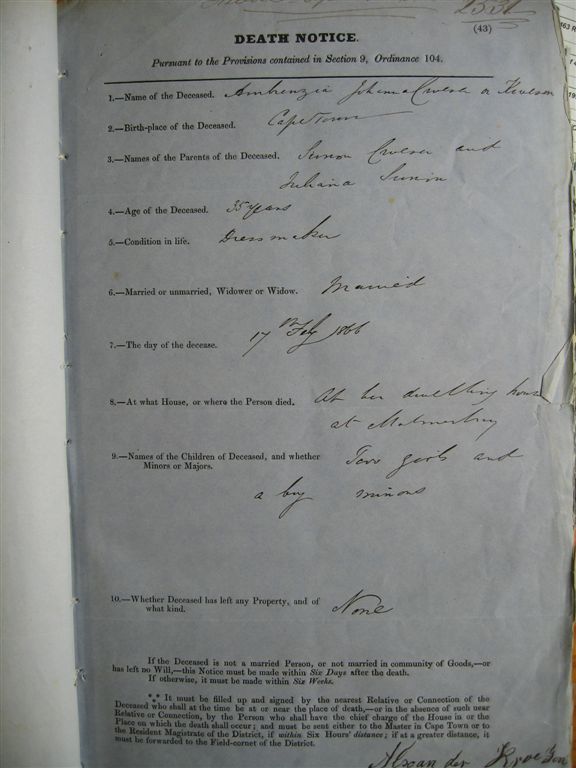 2331
(43)
DEATH NOTICE.
Pursuant to the Provisions contained in Section 9, Ordinance 104.
1.—Name of the Deceased. Johanna or
2.—Birth-place of the Deceased. Cape Town
3.—Names of the Parents of the Deceased. Simon and
Juliana
4.—Age of the Deceased. 35 years
5.—Condition in life. Dressmaker
6.—Married or unmarried, Widower or Widow. Married
7.—The day of the decease. 17th Feby 1866
8.—At what House, or where the Person died. At her dwelling house
at Malmesbury
9.—Names of the Children of Deceased, and whether Two girls and
Minors or Majors.
a boy minors
10.—Whether Deceased has left any Property, and of
what kind. None
If the Deceased is not a married Person, or not married in community of Goods,—or
has left no Will,—this Notice must be made within Six Days after the death.
If otherwise, it must be made within Six Weeks.
*** It must be filled up and signed by the nearest Relative or Connection of the
Deceased who shall at the time be at or near the place of death,—or in the absence of such near
Relative or Connection, by the Person who shall have the chief charge of the House in or the
Place on which the death shall occur; and must be sent either to the Master in Cape Town or to
the Resident Magistrate of the District, if within Six Hours' distance; if at a greater distance, it
must be forwarded to the Field-cornet of the District.